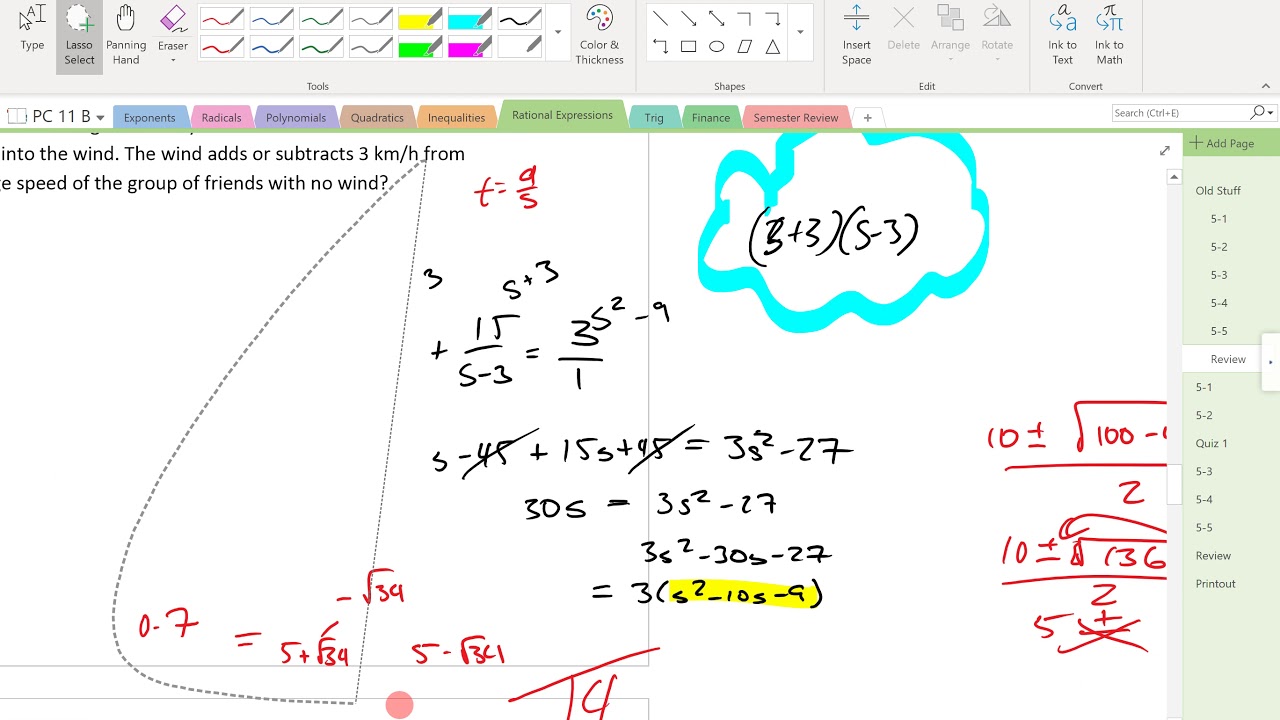 Type
Lasso Select
Panning Hand
Eraser
Color & Thickness
Insert Space
Delete
Arrange
Rotate
Ink to Text
Ink to Math
Tools
Shapes
Edit
Convert
PC 11 B
Exponents
Radicals
Polynomials
Quadratics
Inequalities
Rational Expressions
Trig
Finance
Semester Review
+
Search (Ctrl+E)
Add Page
Old Stuff
5-1
5-2
5-3
5-4
5-5
Review
5-1
5-2
Quiz 1
5-3
5-4
5-5
Review
Printout
into the wind. The wind adds or subtracts 3 km/h from
e speed of the group of friends with no wind?
t = d/s
(s+3)(s-3)
3 s+3 s² - 9
+ 15/s-3 = 3/1
s - 45 + 15s + 45 = 3s² - 27
30s = 3s² - 27
3s² - 30s - 27
= 3(s² - 10s - 9)
10 ± √100 -
2
10 ± √136
2
5 ±
- √34
0.7 = 5+√34 5-√34